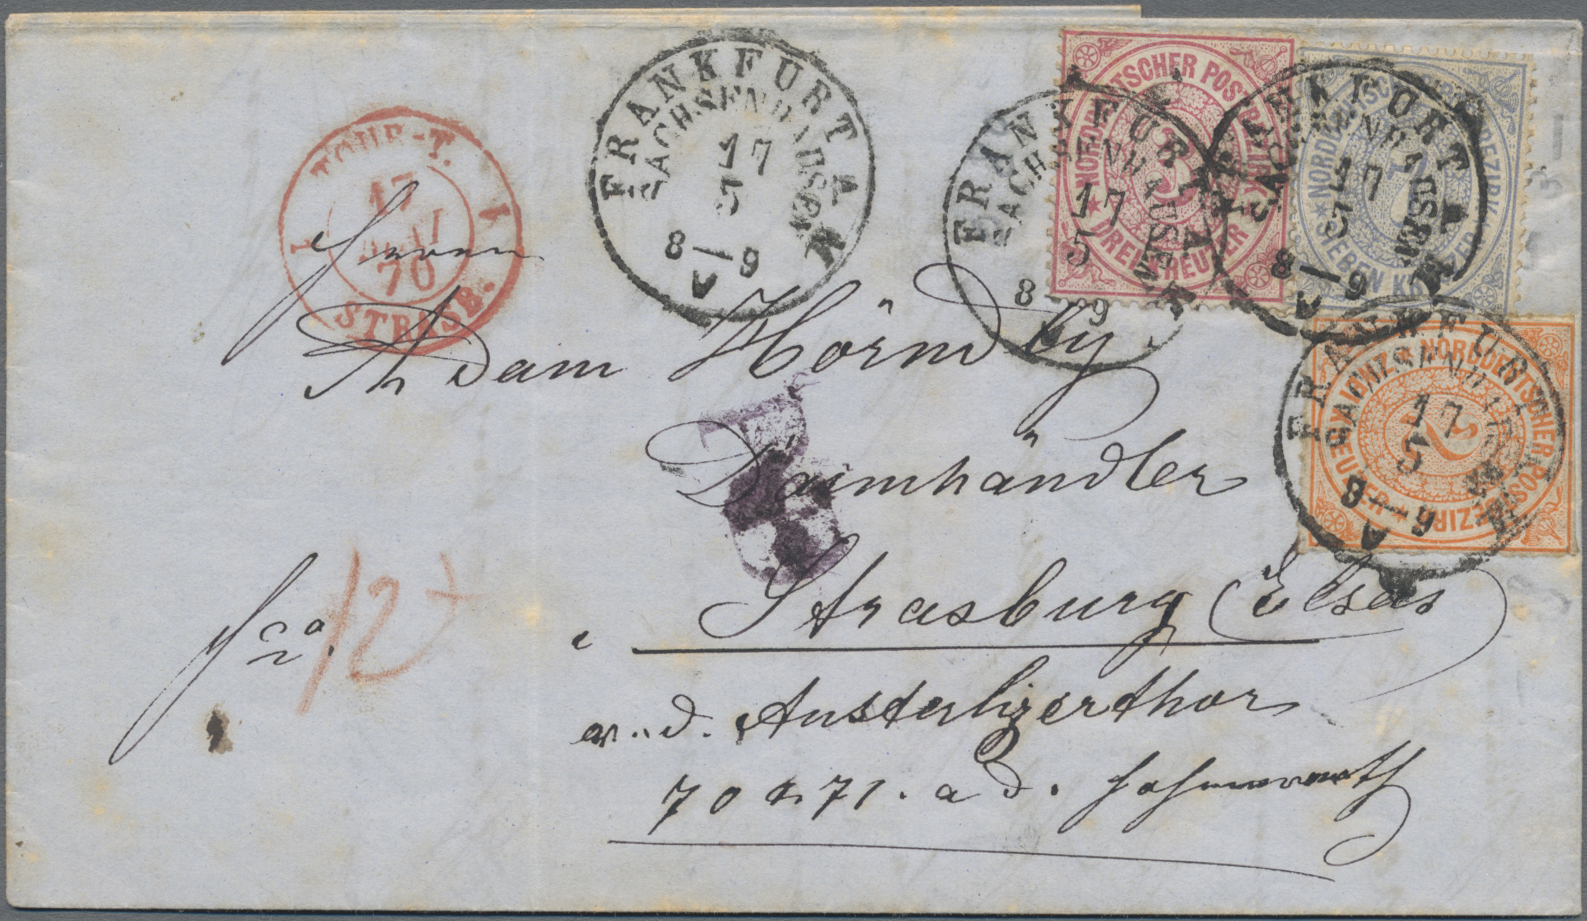 FRANKFURT A M
SACHSENHAUSEN
17
5
8—9
V
FRANKFURT A M
SACHSENHAUSEN
17
5
8—9
NORDDEUTSCHER POSTBEZIRK
3
DREI KREUZER
FRANKFURT A M
SACHSENHAUSEN
17
5
8—9
V
NORDDEUTSCHER POSTBEZIRK
7
SIEBEN KREUZER
TOUR-T.
17
MAI
70
STRASB.
FRANKFURT A M
SACHSENHAUSEN
17
5
8—9
NORDDEUTSCHER POSTBEZIRK
2
KREUZER
Herrn
Adam Hörndly
Strasburg Elsas
fro. 12
v. d. Austerlizerthor
70 & 71. a d.